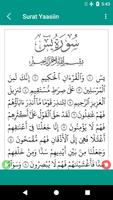 5:43
Surat Yaasiin
سُورَةُ يسٓ
بِسْمِ اللَّهِ الرَّحْمَٰنِ الرَّحِيمِ
يسٓ ۝ وَالْقُرْآنِ الْحَكِيمِ ۝ إِنَّكَ لَمِنَ
الْمُرْسَلِينَ ۝ عَلَىٰ صِرَاطٍ مُّسْتَقِيمٍ ۝ تَنزِيلَ
الْعَزِيزِ الرَّحِيمِ ۝ لِتُنذِرَ قَوْمًا مَّا أُنذِرَ
آبَاؤُهُمْ فَهُمْ غَافِلُونَ ۝ لَقَدْ حَقَّ الْقَوْلُ
عَلَىٰ أَكْثَرِهِمْ فَهُمْ لَا يُؤْمِنُونَ ۝ إِنَّا
جَعَلْنَا فِي أَعْنَاقِهِمْ أَغْلَالًا فَهِيَ إِلَى
الْأَذْقَانِ فَهُم مُّقْمَحُونَ ۝ وَجَعَلْنَا
مِن بَيْنِ أَيْدِيهِمْ سَدًّا وَمِنْ خَلْفِهِمْ
سَدًّا فَأَغْشَيْنَاهُمْ فَهُمْ لَا يُبْصِرُونَ